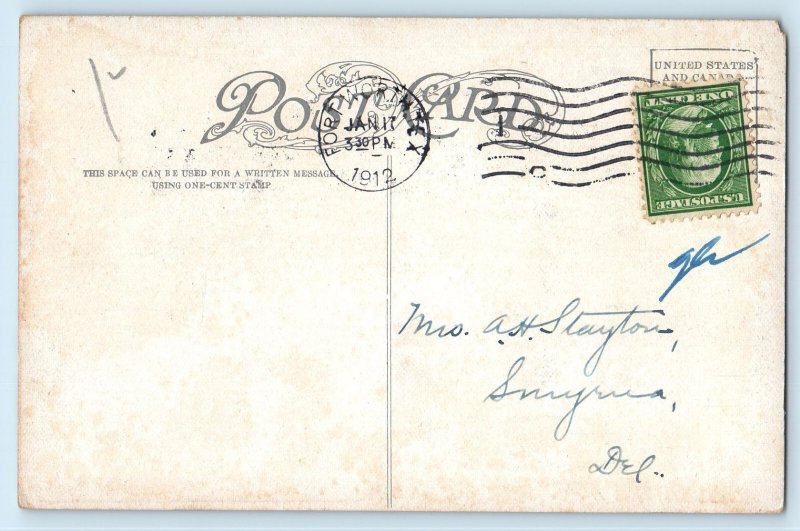 POST CARD
FORT WORTH TEX
JAN 17
3 30 PM
1912
UNITED STATES
AND CANADA
ONE CENT
U.S.POSTAGE
THIS SPACE CAN BE USED FOR A WRITTEN MESSAGE,
USING ONE-CENT STAMP
Mrs. A.H. Stayton,
Smyrna,
Del.